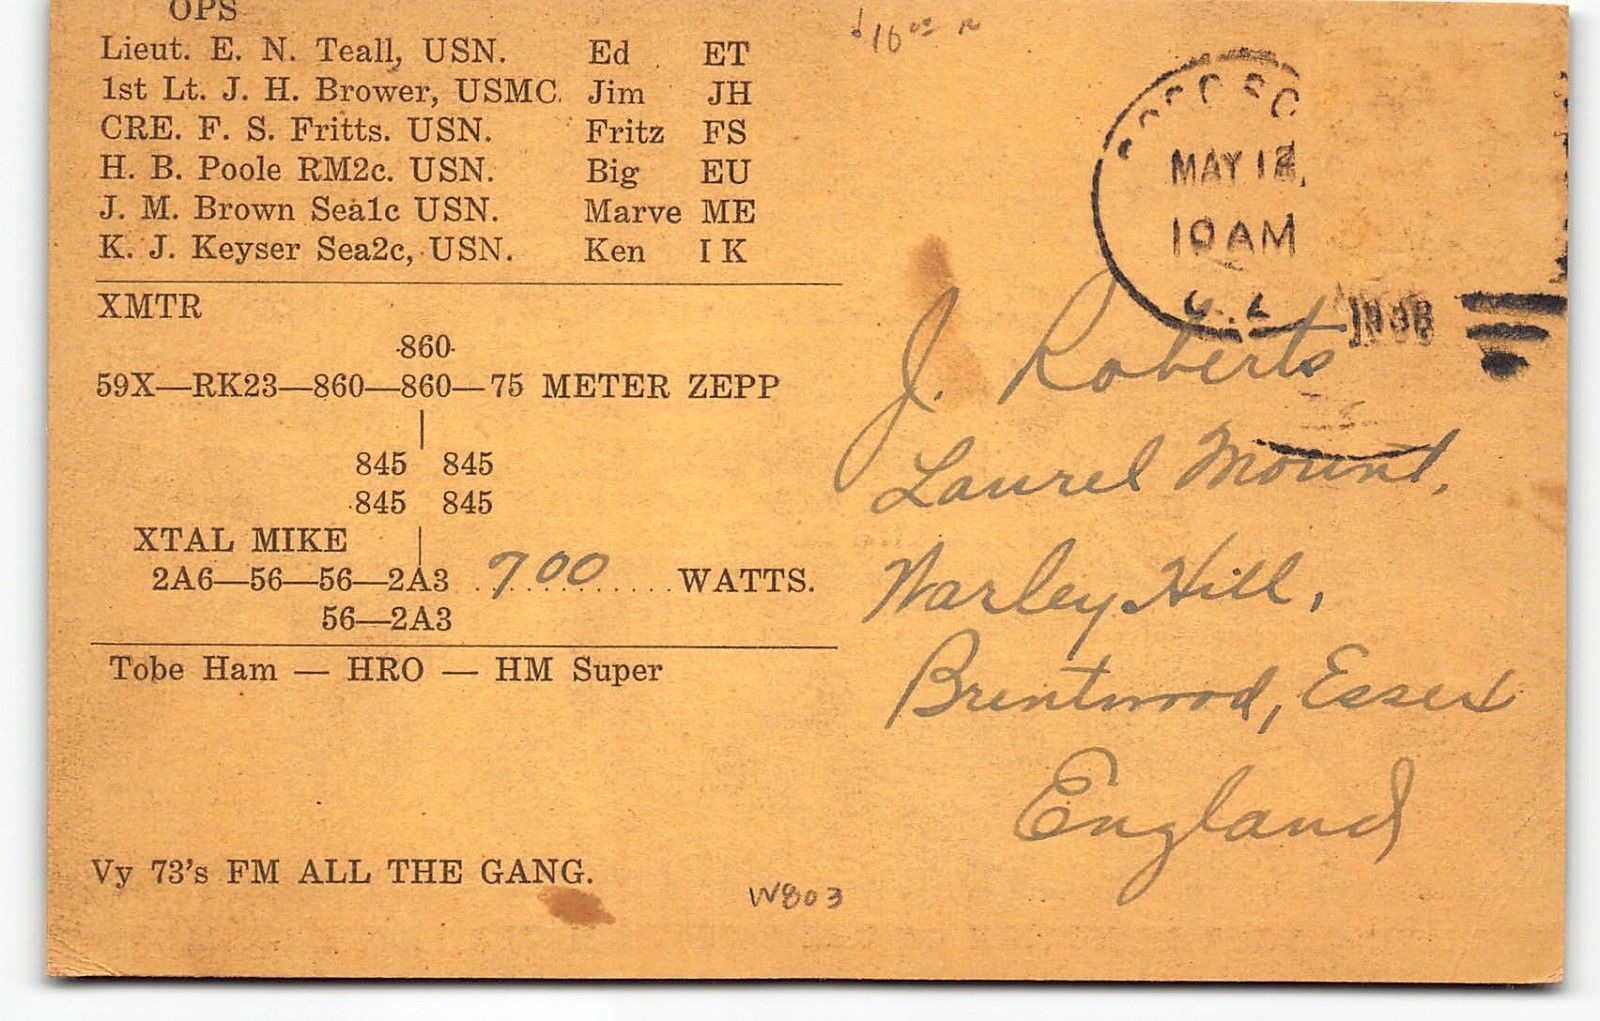 OPS
Lieut. E. N. Teall, USN. Ed ET
1st Lt. J. H. Brower, USMC. Jim JH
CRE. F. S. Fritts. USN. Fritz FS
H. B. Poole RM2c. USN. Big EU
J. M. Brown Sea1c USN. Marve ME
K. J. Keyser Sea2c, USN. Ken I K
XMTR
860
59X—RK23—860—860—75 METER ZEPP
845 845
845 845
XTAL MIKE
2A6—56—56—2A3 700 WATTS.
56—2A3
Tobe Ham — HRO — HM Super
Vy 73's FM ALL THE GANG.
W803
MAY
10 AM
J. Roberts
Laurel Mount,
Warley Hill,
Brentwood, Essex
England